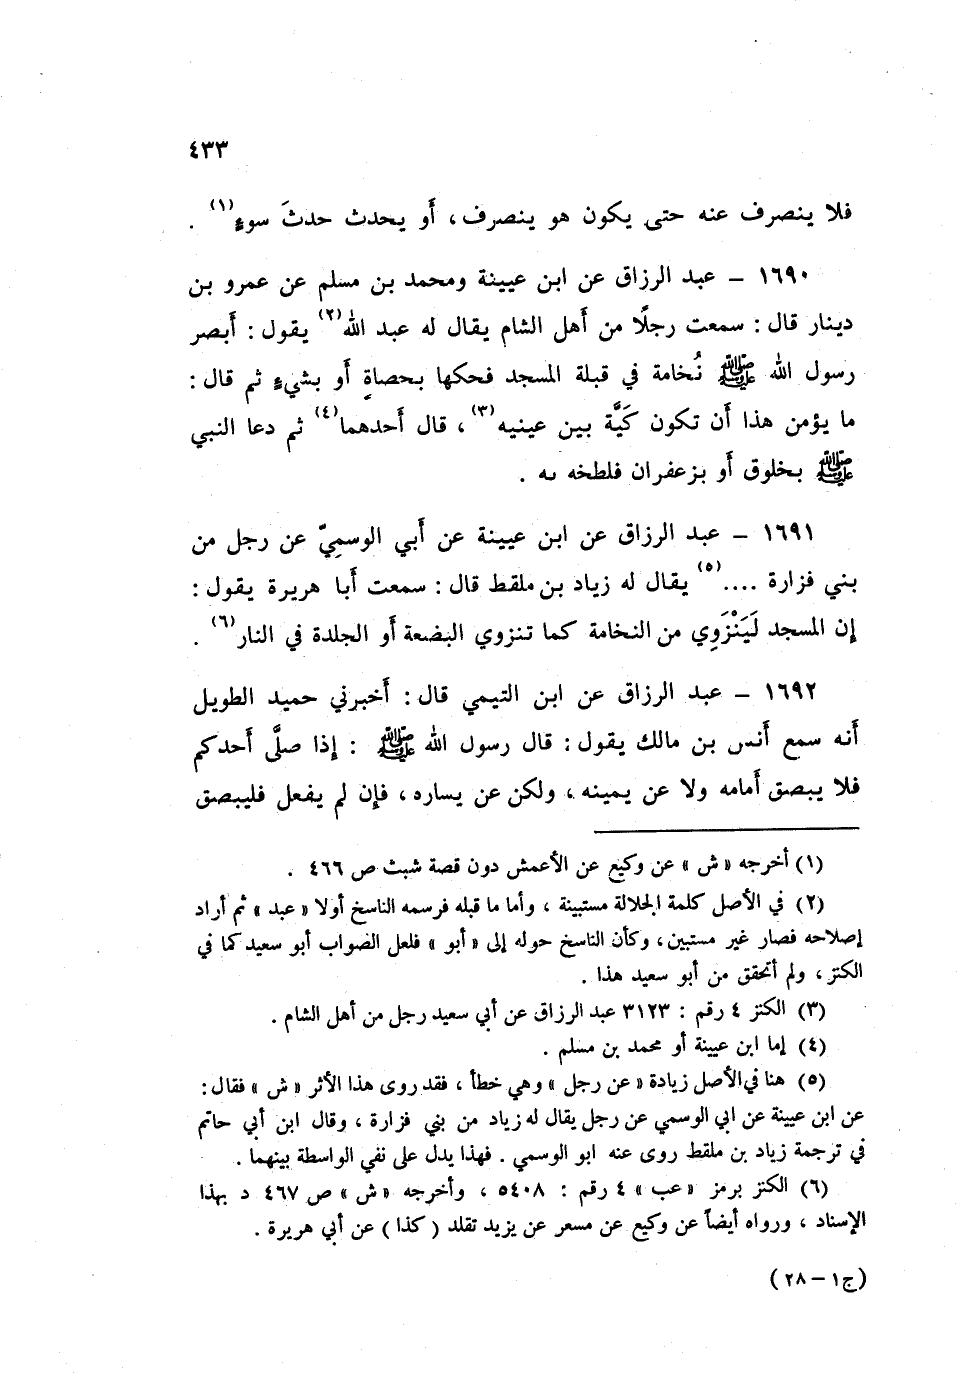 ٤٣٣
فلا ينصرف عنه حتى يكون هو ينصرف، أَو يحدث حدثَ سوءٍ(١) .
١٦٩٠ – عبد الرزاق عن ابن عيينة ومحمد بن مسلم عن عمرو بن
دينار قال : سمعت رجلًا من أَهل الشام يقال له عبد الله(٢) يقول : أَبصر
رسول الله ﷺ نُخامة في قبلة المسجد فحكها بحصاةٍ أَو بشيءٍ ثم قال :
ما يؤمن هذا أَن تكون كَيَّة بين عينيه(٣) ، قال أَحدهما(٤) ثم دعا النبي
ﷺ بخلوق أَو بزعفران فلطخه به .
١٦٩١ – عبد الرزاق عن ابن عيينة عن أَبي الوسمِيّ عن رجل من
بني فزارة ....(٥) يقال له زياد بن ملقط قال : سمعت أَبا هريرة يقول :
إن المسجد لَيَنْزَوِي من النخامة كما تنزوي البضعة أَو الجلدة في النار(٦) .
١٦٩٢ – عبد الرزاق عن ابن التيمي قال : أَخبرني حميد الطويل
أَنه سمع أَنس بن مالك يقول : قال رسول الله ﷺ : إِذا صلَّى أَحدكم
فلا يبصق أَمامه ولا عن يمينه ، ولكن عن يساره ، فإِن لم يفعل فليبصق
(١) أخرجه « ش » عن وكيع عن الأعمش دون قصة شبث ص ٤٦٦ .
(٢) في الأصل كلمة الجلالة مستبينة ، وأما ما قبله فرسمه الناسخ أولا « عبد » ثم أراد
إصلاحه فصار غير مستبين ، وكأن الناسخ حوله إلى « أبو » فلعل الصواب أبو سعيد كما في
الكنز ، ولم أتحقق من أبو سعيد هذا .
(٣) الكنز ٤ رقم : ٣١٢٣ عبد الرزاق عن أبي سعيد رجل من أهل الشام .
(٤) إما ابن عيينة أو محمد بن مسلم .
(٥) هنا في الأصل زيادة « عن رجل » وهي خطأ ، فقد روى هذا الأثر « ش » فقال :
عن ابن عيينة عن ابي الوسمي عن رجل يقال له زياد من بني فزارة ، وقال ابن أبي حاتم
في ترجمة زياد بن ملقط روى عنه ابو الوسمي . فهذا يدل على نفي الواسطة بينهما .
(٦) الكنز برمز « عب » ٤ رقم : ٥٤٠٨ ، وأخرجه « ش » ص ٤٦٧ د بهذا
الإسناد ، ورواه أيضاً عن وكيع عن مسعر عن يزيد تقلد ( كذا ) عن أبي هريرة .
(ج١ – ٢٨)